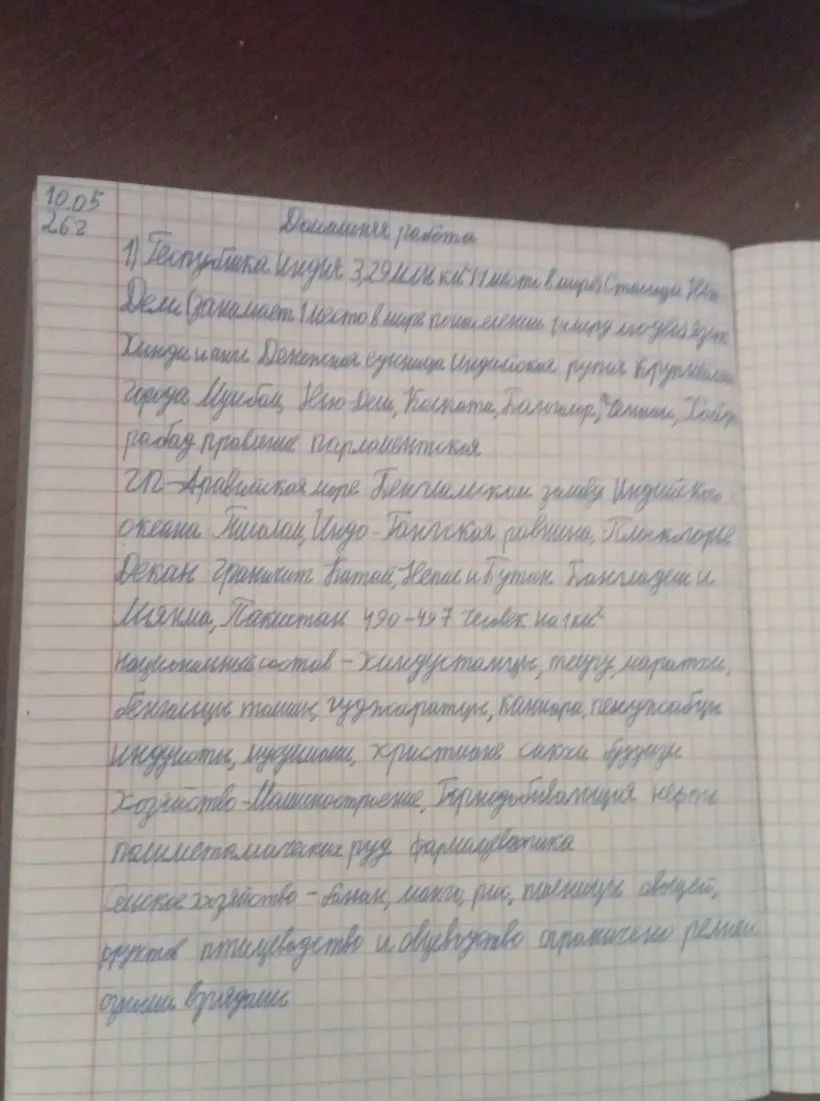 10.05
26г
Домашняя работа
1) Республика Индия 3,29 млн км² место в мире Столица Нью
Дели (занимает 1 место в мире по населению 1,4 млрд людей) язык
Хинди и анг Денежная единица Индийская рупия Крупнейшие
города Мумбаи, Нью-Дели, Колката, Бангалор, Ченнаи, Хайде
рабад правление парламентская
ГП-Аравийская море Бенгальским заливу Индийского
океана Гималаи, Индо-Гангская равнина, Плоскогорье
Декан Граничит Китай, Непал и Бутан Бангладеш и
Мьянма, Пакистан 490-497 человек на 1 км²
национальный состав - хиндустанцы, телугу, маратхи,
бенгальцы тамилы, гуджаратцы, каннара, пенджабцы
индуисты, мусульмани, христиане сикхи буддизм
Хозяйство-Машиностроение, Горнодобывающая нефть
полиметаллических руд фармацевтика
Сельское хозяйство - банан, манго, рис, пшеницы овощей,
фруктов птицеводство и овцеводство ограничено религи
озными обрядами